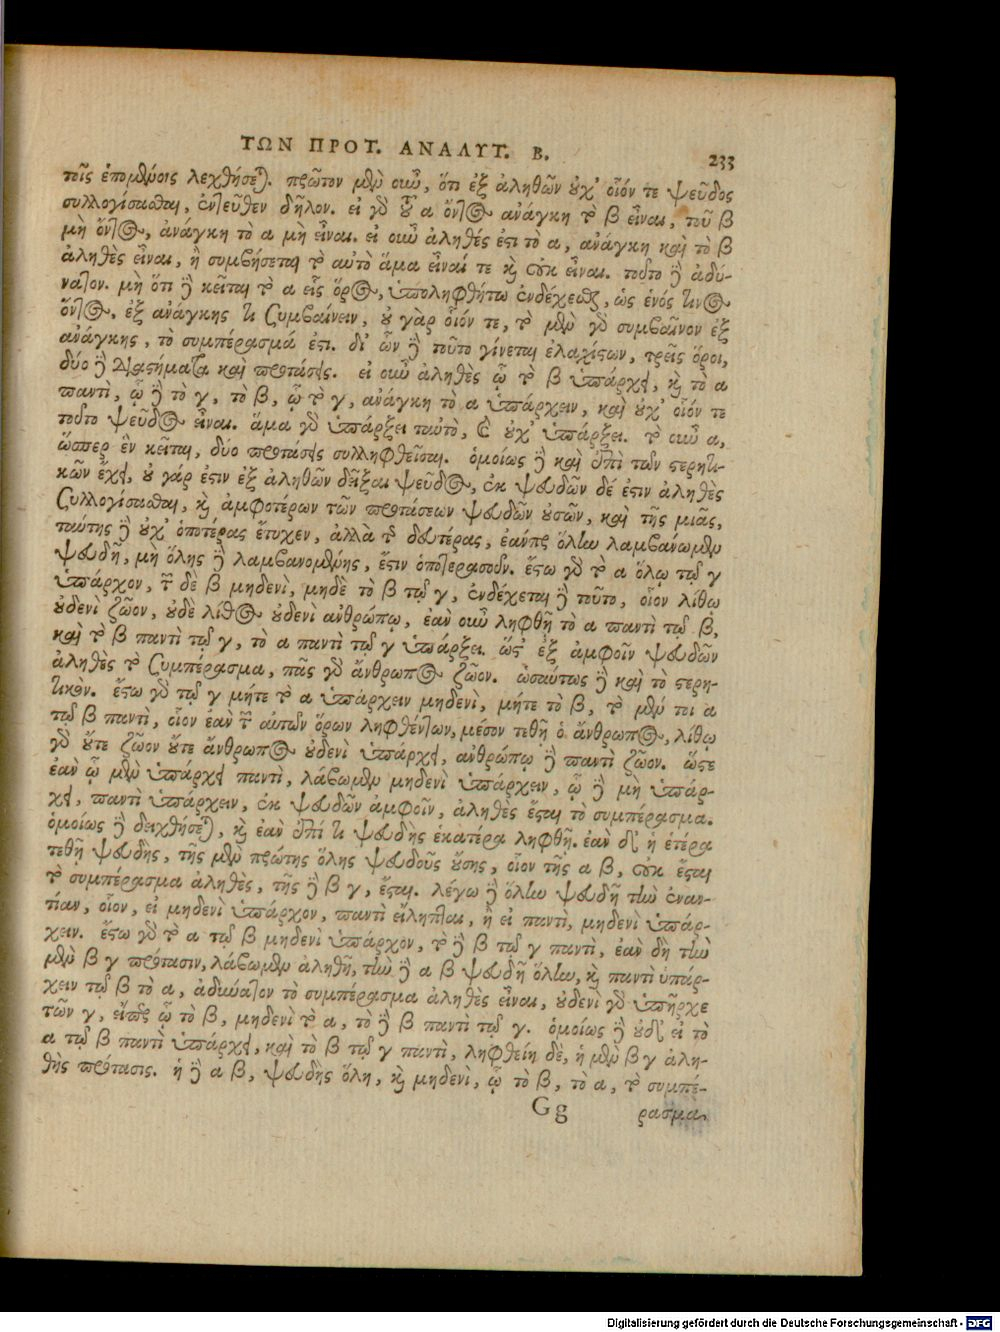 ΤΩΝ ΠΡΟΤ. ΑΝΑΛΥΤ. Β. 233
τοῖς ἑπομένοις λεχθήσεται. πρῶτον μὲν οὖν, ὅτι ἐξ ἀληθῶν οὐχ' οἷόν τε ψεῦδος
συλλογίσασθαι, ἐντεῦθεν δῆλον. εἰ γὰρ τοῦ α ὄντος ἀνάγκη τὸ β εἶναι, τοῦ β
μὴ ὄντος, ἀνάγκη τὸ α μὴ εἶναι. εἰ οὖν ἀληθές ἐστι τὸ α, ἀνάγκη καὶ τὸ β
ἀληθὲς εἶναι, ἢ συμβήσεται τὸ αὐτὸ ἅμα εἶναί τε καὶ οὐκ εἶναι. τοῦτο δὲ ἀδύ-
νατον. μὴ ὅτι δὲ κεῖται τὸ α εἷς ὅρος, ὑποληφθήτω ἐνδέχεσθαι, ὡς ἑνός τινος
ὄντος, ἐξ ἀνάγκης τι συμβαίνειν, οὐ γὰρ οἷόν τε, τὸ μὲν γὰρ συμβαῖνον ἐξ
ἀνάγκης, τὸ συμπέρασμά ἐστι. δι' ὧν δὲ τοῦτο γίνεται ἐλαχίστων, τρεῖς ὅροι,
δύο δὲ διαστήματα καὶ προτάσεις. εἰ οὖν ἀληθὲς ᾧ τὸ β ὑπάρχει, καὶ τὸ α
παντὶ, ᾧ δὲ τὸ γ, τὸ β, ᾧ τὸ γ, ἀνάγκη τὸ α ὑπάρχειν, καὶ οὐχ' οἷόν τε
τοῦτο ψεῦδος εἶναι. ἅμα γὰρ ὑπάρξει ταὐτὸ, καὶ οὐχ' ὑπάρξει. τὸ οὖν α,
ὥσπερ ἓν κεῖται, δύο προτάσεις συλληφθεῖσαι. ὁμοίως δὲ καὶ ἐπὶ τῶν στερητι-
κῶν ἔχει, οὐ γάρ ἐστιν ἐξ ἀληθῶν δεῖξαι ψεῦδος, ἐκ ψευδῶν δέ ἐστιν ἀληθὲς
συλλογίσασθαι, καὶ ἀμφοτέρων τῶν προτάσεων ψευδῶν οὐσῶν, καὶ τῆς μιᾶς,
ταύτης δὲ οὐχ' ὁποτέρας ἔτυχεν, ἀλλὰ τῆς δευτέρας, ἐάνπερ ὅλην λαμβάνωμεν
ψευδῆ, μὴ ὅλης δὲ λαμβανομένης, ἔστιν ὁποτερασοῦν. ἔστω γὰρ τὸ α ὅλῳ τῷ γ
ὑπάρχον, τῷ δὲ β μηδενὶ, μηδὲ τὸ β τῷ γ, ἐνδέχεται δὲ τοῦτο, οἷον λίθῳ
οὐδενὶ ζῶον, οὐδὲ λίθος οὐδενὶ ἀνθρώπῳ, ἐὰν οὖν ληφθῇ τὸ α παντὶ τῷ β,
καὶ τὸ β παντὶ τῷ γ, τὸ α παντὶ τῷ γ ὑπάρξει. ὥστ' ἐξ ἀμφοῖν ψευδῶν
ἀληθὲς τὸ συμπέρασμα, πᾶς γὰρ ἄνθρωπος ζῶον. ὡσαύτως δὲ καὶ τὸ στερη-
τικόν. ἔστω γὰρ τῷ γ μήτε τὸ α ὑπάρχειν μηδενὶ, μήτε τὸ β, τὸ μέν τοι α
τῷ β παντὶ, οἷον ἐὰν τῶν αὐτῶν ὅρων ληφθέντων, μέσον τεθῇ ὁ ἄνθρωπος, λίθῳ
γὰρ οὔτε ζῶον οὔτε ἄνθρωπος οὐδενὶ ὑπάρχει, ἀνθρώπῳ δὲ παντὶ ζῶον. ὥστε
ἐὰν ᾧ μὲν ὑπάρχει παντὶ, λάβωμεν μηδενὶ ὑπάρχειν, ᾧ δὲ μὴ ὑπάρ-
χει, παντὶ ὑπάρχειν, ἐκ ψευδῶν ἀμφοῖν, ἀληθὲς ἔσται τὸ συμπέρασμα.
ὁμοίως δὲ δειχθήσεται, καὶ ἐὰν ἐπί τι ψευδὴς ἑκατέρα ληφθῇ. ἐὰν δ' ἡ ἑτέρα
τεθῇ ψευδὴς, τῆς μὲν πρώτης ὅλης ψευδοῦς οὔσης, οἷον τῆς α β, οὐκ ἔσται
τὸ συμπέρασμα ἀληθὲς, τῆς δὲ β γ, ἔσται. λέγω δὲ ὅλην ψευδῆ τὴν ἐναν-
τίαν, οἷον, εἰ μηδενὶ ὑπάρχον, παντὶ εἴληπται, ἢ εἰ παντὶ, μηδενὶ ὑπάρ-
χειν. ἔστω γὰρ τὸ α τῷ β μηδενὶ ὑπάρχον, τὸ δὲ β τῷ γ παντὶ, ἐὰν δὴ τὴν
μὲν β γ πρότασιν, λάβωμεν ἀληθῆ, τὴν δὲ α β ψευδῆ ὅλην, καὶ παντὶ ὑπάρ-
χειν τῷ β τὸ α, ἀδύνατον τὸ συμπέρασμα ἀληθὲς εἶναι, οὐδενὶ γὰρ ὑπῆρχε
τῶν γ, εἴπερ ᾧ τὸ β, μηδενὶ τὸ α, τὸ δὲ β παντὶ τῷ γ. ὁμοίως δὲ οὐδ' εἰ τὸ
α τῷ β παντὶ ὑπάρχει, καὶ τὸ β τῷ γ παντὶ, ληφθείη δὲ, ἡ μὲν β γ ἀλη-
θὴς πρότασις. ἡ δὲ α β, ψευδὴς ὅλη, καὶ μηδενὶ, ᾧ τὸ β, τὸ α, τὸ συμπέ-
Gg ρασμα
Digitalisierung gefördert durch die Deutsche Forschungsgemeinschaft - DFG